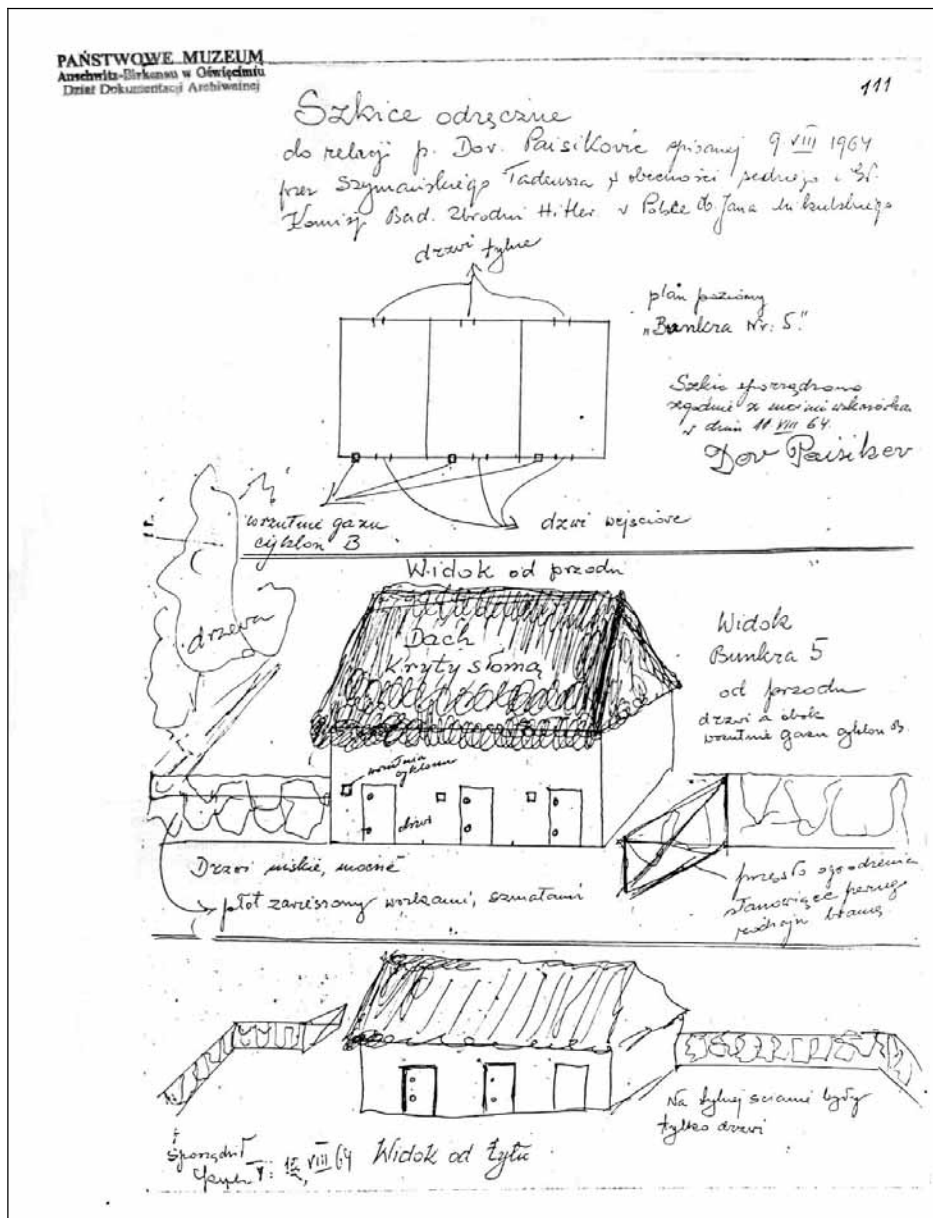 PAŃSTWOWE MUZEUM
Auschwitz-Birkenau w Oświęcimiu
Dział Dokumentacji Archiwalnej
111
Szkice odręczne
do relacji p. Dov. Paisikovic spisanej 9 VIII 1964
przez Szymańskiego Tadeusza w obecności sędziego
Komisji Bad. Zbrodni Hitler. w Polsce Jana Mikulskiego
drzwi tylne
plan poziomy
„Bunkra Nr: 5."
Szkic sporządzono
zgodnie z moimi wskazówkami
w dniu 11 VIII 64.
Dov Paisikov
wrzutnie gazu
cyklon B
drzwi wejściowe
Widok od przodu
drzewa
Dach
kryty słomą
Widok
Bunkra 5
od przodu
drzwi a obok
wrzutnie gazu cyklon B.
wrzutnia
cyklonu
drzwi
Drzwi niskie, mocne
płot zawieszony workami, szmatami
przęsło ogrodzenia
stanowiące pewnego
rodzaju bramę
Na tylnej ścianie były
tylko drzwi
Sporządził
VIII 64 Widok od tyłu